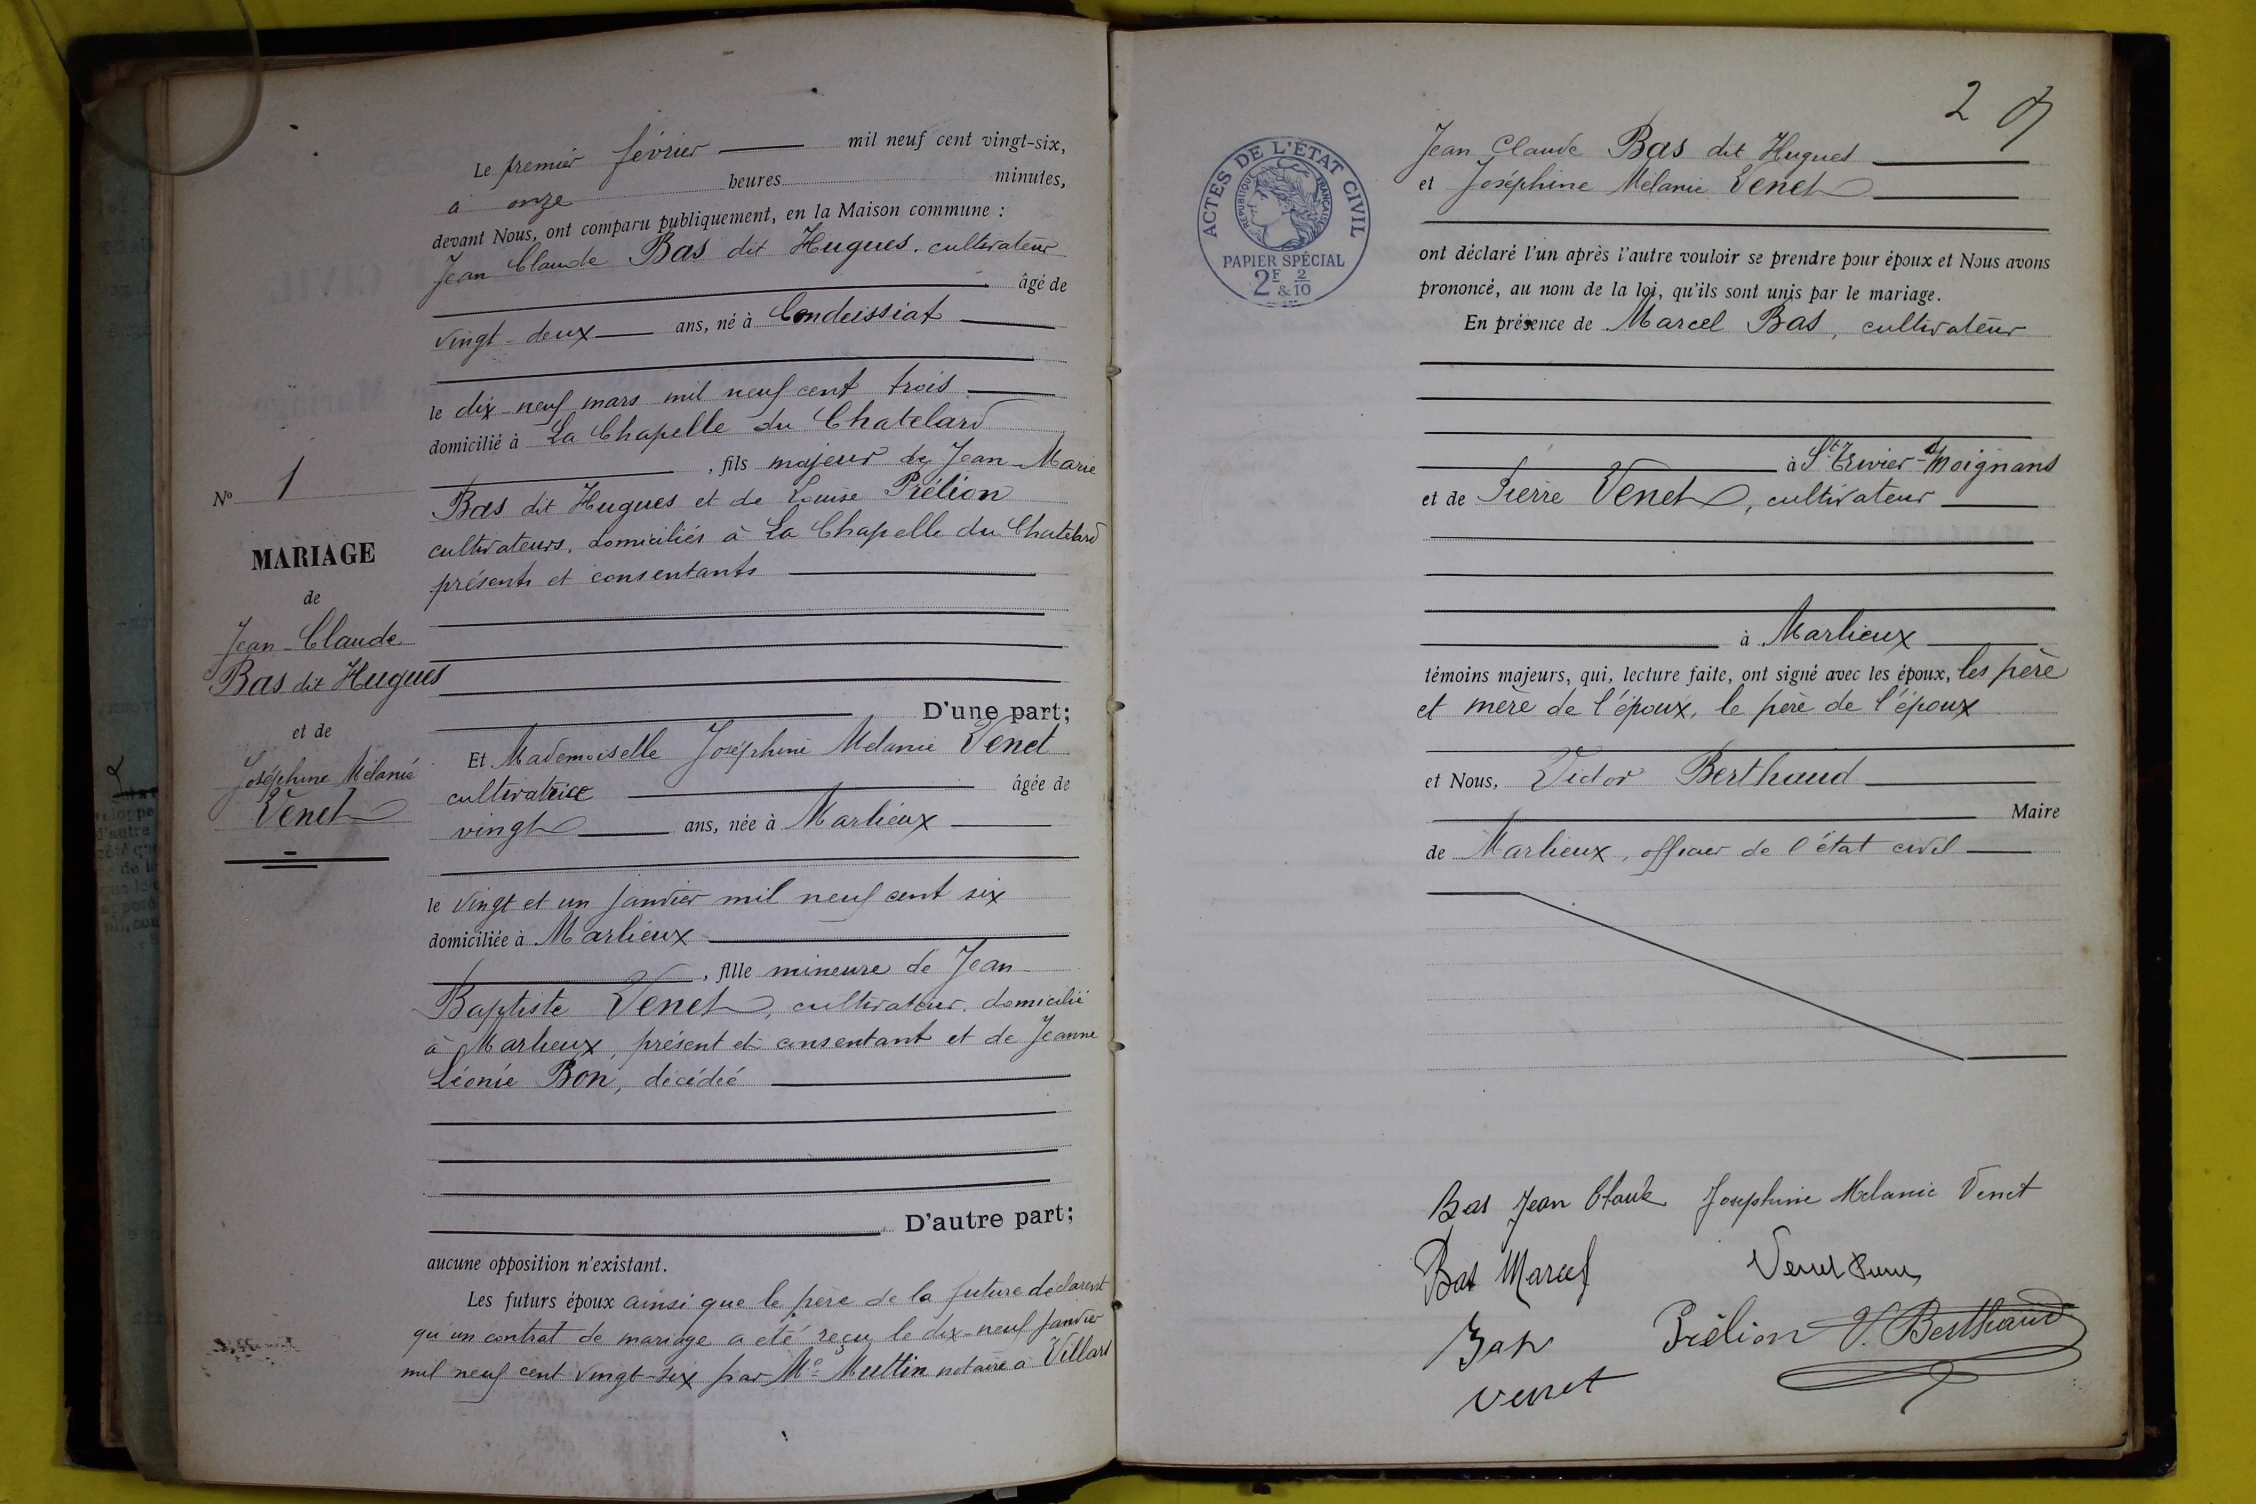 Le premier février mil neuf cent vingt-six,
à onze heures minutes,
devant Nous, ont comparu publiquement, en la Maison commune :
Jean Claude Bas dit Hugues, cultivateur
âgé de
vingt-deux ans, né à Condeissiat
le dix-neuf mars mil neuf cent trois
domicilié à La Chapelle du Chatelard
, fils majeur de Jean-Marie
Bas dit Hugues et de Louise Prélion
cultivateurs, domiciliés à La Chapelle du Chatelard
présents et consentants
D'une part;
Et Mademoiselle Joséphine Mélanie Venet
cultivatrice âgée de
vingt ans, née à Marlieux
le vingt et un janvier mil neuf cent six
domiciliée à Marlieux
, fille mineure de Jean
Baptiste Venet, cultivateur, domicilié
à Marlieux, présent et consentant et de Jeanne
Léonie Bon, décédée
D'autre part;
aucune opposition n'existant.
Les futurs époux ainsi que le père de la future déclarent
qu'un contrat de mariage a été reçu le dix-neuf janvier
mil neuf cent vingt-six par Me Muttin notaire à Villars
No 1
MARIAGE
de
Jean-Claude
Bas dit Hugues
et de
Joséphine Mélanie
Venet
2
ACTES DE L'ÉTAT CIVIL
RÉPUBLIQUE FRANÇAISE
PAPIER SPÉCIAL
2F & 2/10
Jean Claude Bas dit Hugues
et Joséphine Mélanie Venet
ont déclaré l'un après l'autre vouloir se prendre pour époux et Nous avons
prononcé, au nom de la loi, qu'ils sont unis par le mariage.
En présence de Marcel Bas, cultivateur
à St Trivier-s/Moignans
et de Pierre Venet, cultivateur
à Marlieux
témoins majeurs, qui, lecture faite, ont signé avec les époux, les père
et mère de l'époux, le père de l'époux
et Nous, Victor Berthaud
Maire
de Marlieux, officier de l'état civil
Bas Jean Claude Josephine Melanie Venet
Bas Marcel Venet Pierre
Bas Prélion V. Berthaud
Venet